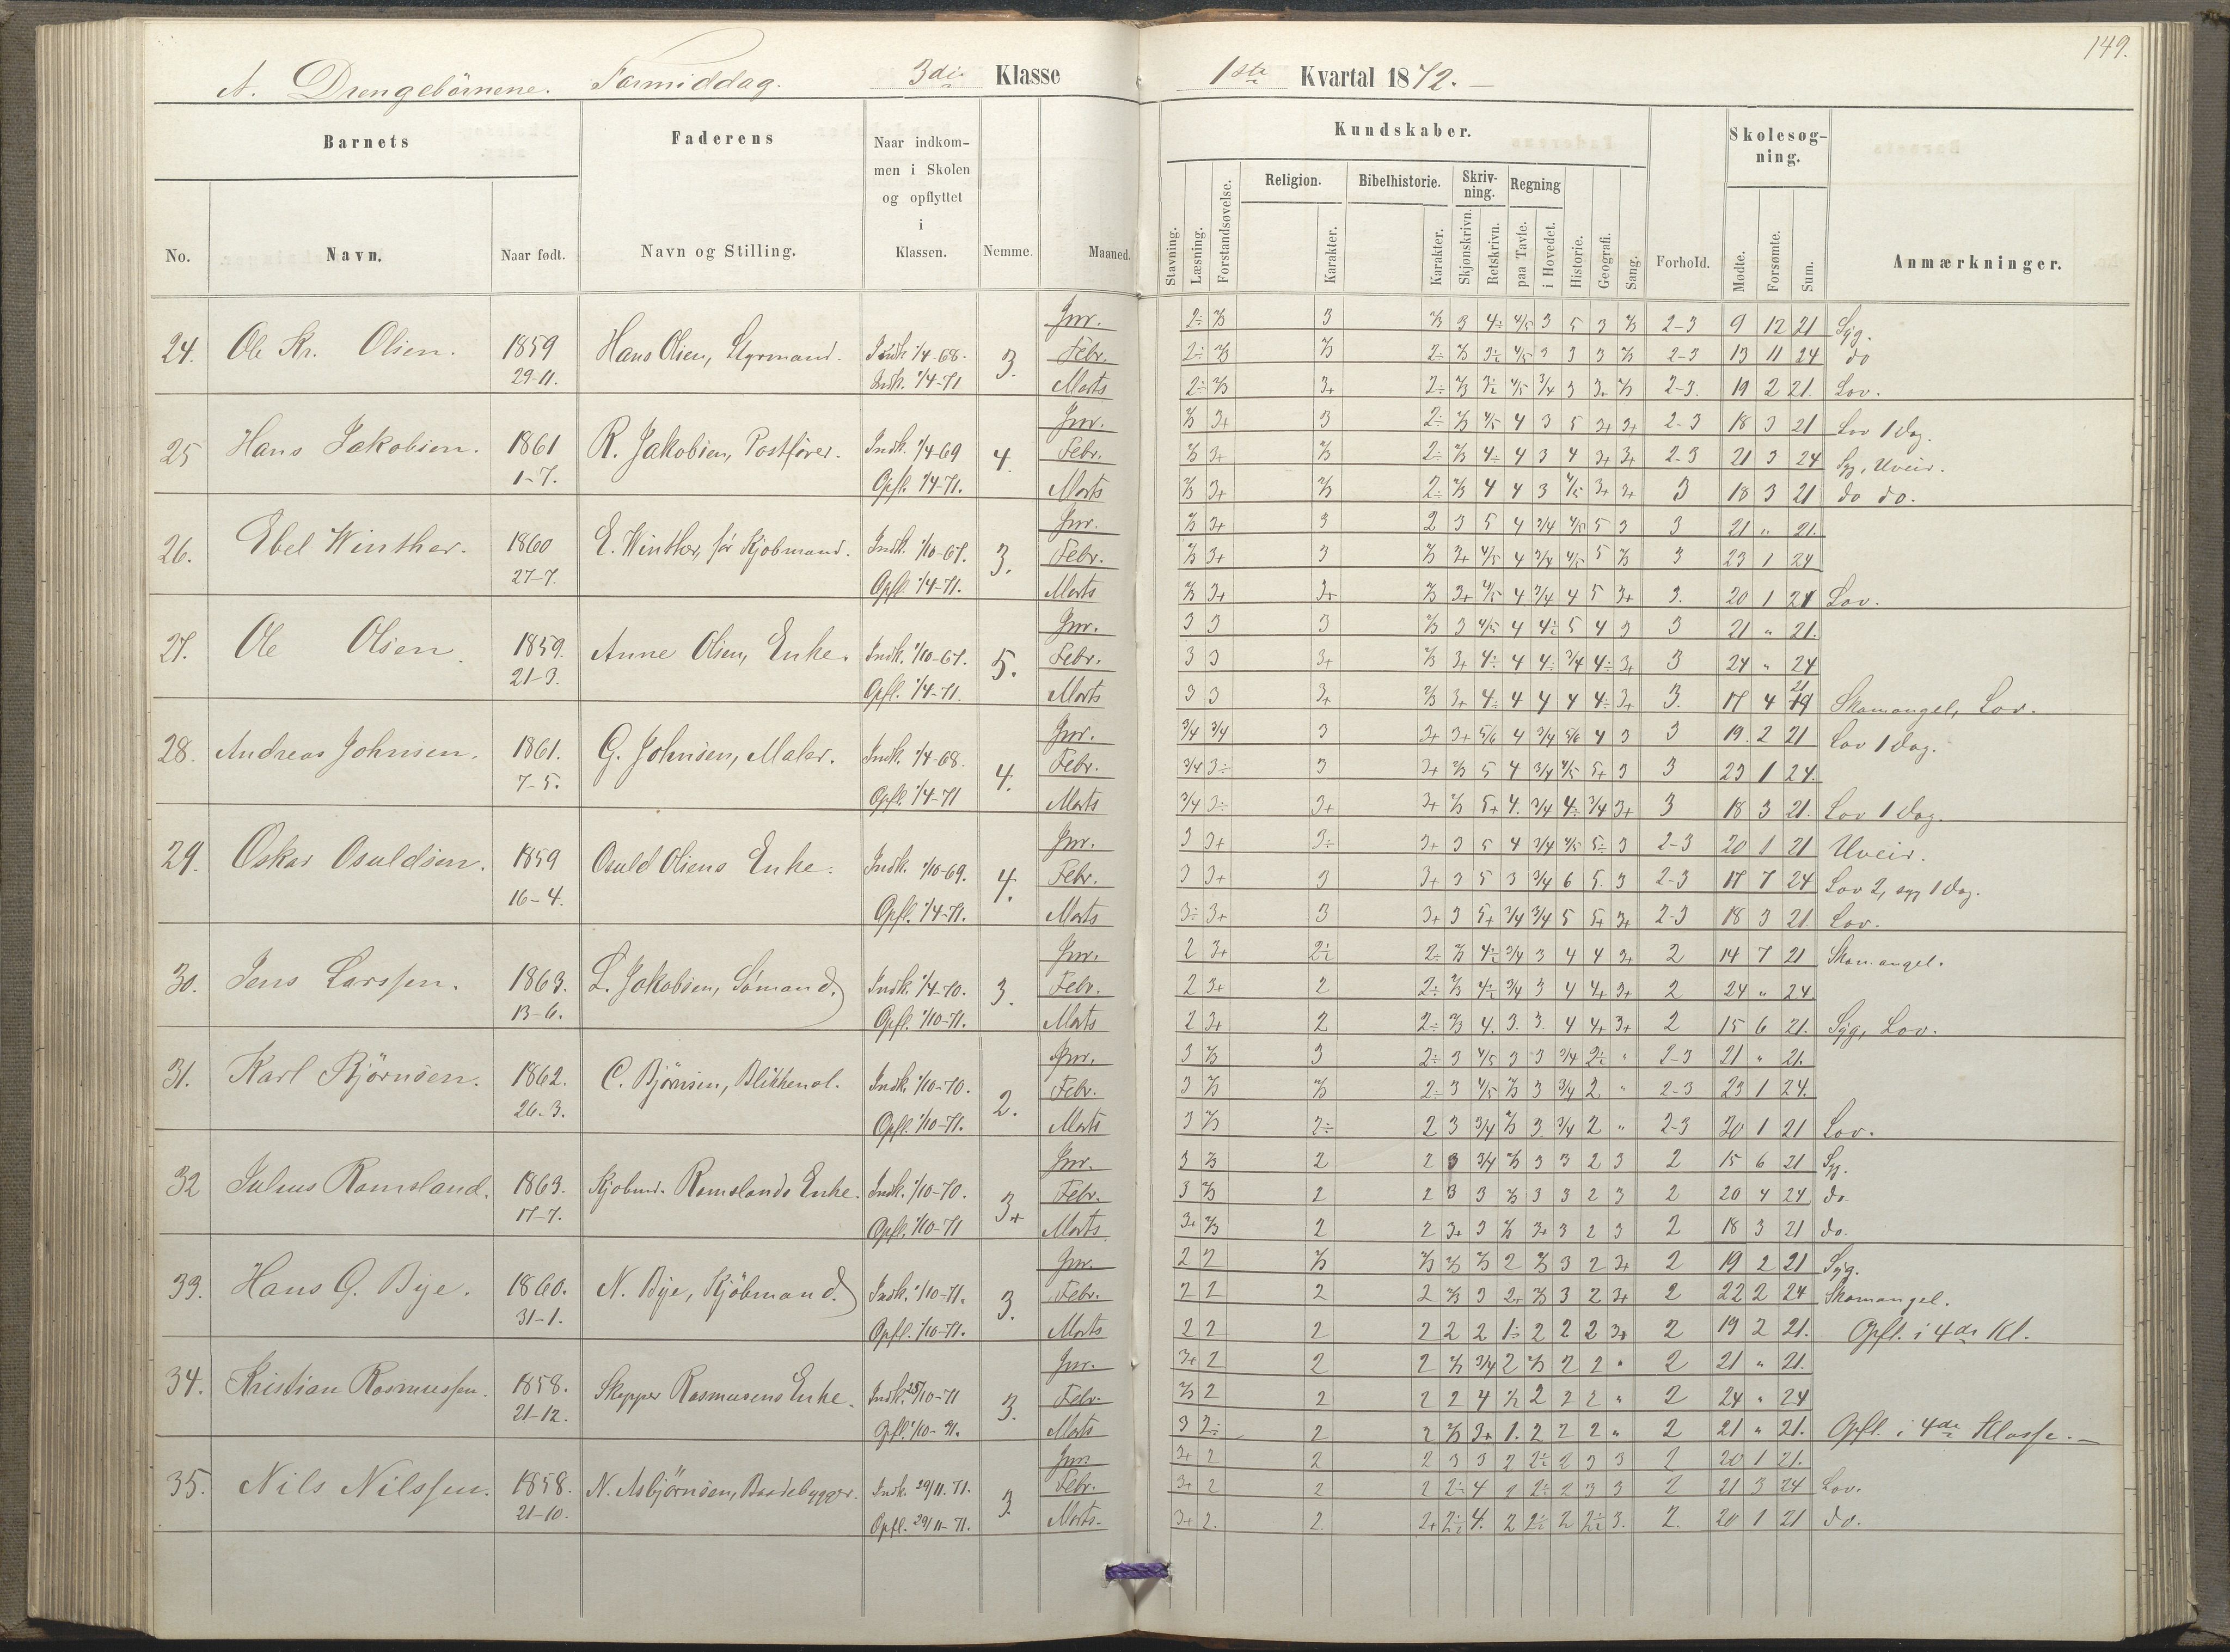 149.
A. Drengebörnene. Formiddag. 3die Klasse 1ste Kvartal 1872.
Barnets Faderens Naar indkommen i Skolen og opflyttet i Klassen. Nemme. Maaned. Kundskaber. Forhold. Skolesøgning. Anmærkninger.
No. Navn. Naar født. Navn og Stilling.
Stavning. Læsning. Forstandsøvelse. Religion. Karakter. Bibelhistorie. Karakter. Skrivning. Skjønskrivn. Retskrivn. Regning paa Tavle. i Hovedet. Historie. Geografi. Sang. Mødte. Forsømte. Sum.
24. Ole Kr. Olsen. 1859 29-11. Hans Olsen, Styrmand. Indk. 1/4-68. Indk. 1/4-71 3.
Jnr. 2÷ 2/3 3 2/3 3 4÷ 4/5 3 5 3 2/3 2-3 9 12 21 Syg.
Febr. 2÷ 2/3 2/3 2÷ 2/3 3÷ 4/5 3 3 3 2/3 2-3 13 11 24 do
Marts 2÷ 2/3 3+ 2÷ 2/3 3÷ 4/5 3/4 3 3+ 2/3 2-3. 19 2 21. Lov.
25 Hans Jakobsen. 1861 1-7. R. Jakobsen, Postfører. Indk. 1/4-69 Opfl. 1/4-71. 4.
Jnr. 2/3 3+ 3 2÷ 2/3 4/5 4 3 5 3+ 3+ 2-3 18 3 21 Lov 1 dag.
Febr. 2/3 3+ 2/3 2÷ 2/3 4÷ 4 3 4 3+ 3+ 2-3 21 3 24 Syg, Uveir.
Marts 2/3 3+ 2/3 2÷ 2/3 4 4 3 4/5 3+ 3+ 3 18 3 21 do do.
26. Ebel Winther. 1860 27-7. E. Winther, før Kjöbmand. Indk. 1/10-67. Opfl. 1/4-71. 3.
Jnr. 2/3 3+ 3 2 3 5 4 3/4 4/5 5 3 3 21 " 21.
Febr. 2/3 3+ 3 2/3 3+ 4/5 4 3/4 4/5 5 2/3 3 23 1 24
Marts 2/3 3+ 3+ 2/3 3+ 4/5 4 3/4 4 5 3+ 3. 20 1 21 Lov.
27. Ole Olsen. 1859. 21-3. Anne Olsen, Enke. Indk. 1/10-67. Opfl. 1/4-71. 5.
Jnr. 3 3 3 2/3 3 4/5 4 4÷ 5 4 3 3 21 " 21.
Febr. 3 3 3+ 2/3 3+ 4÷ 4 4÷ 3/4 4÷ 3+ 3 24 " 24
Marts 3 3 3+ 2/3 3+ 4÷ 4 4 4 4÷ 3+ 3. 17 4 21 Skomangel, Lov.
28. Andreas Johnsen. 1861. 7-5. G. Johnsen, Maler. Indk. 1/4-68. Opfl. 1/4-71 4.
Jnr. 3/4 3/4 3 3+ 3+ 5/6 4 3/4 5/6 4 3 3 19. 2 21 Lov 1 dag.
Febr. 3/4 3÷ 3 3+ 2/3 5 4 3/4 4/5 5+ 3 3 23 1 24.
Marts 3/4 3÷ 3+ 3+ 2/3 5+ 4. 3/4 4÷ 3/4 3+ 3 18 3 21. Lov 1 dag.
29. Oskar Osuldsen. 1859 16-4. Osuld Olsens Enke. Indk. 1/10-69. Opfl. 1/4-71. 4.
Jnr. 3 3+ 3÷ 3+ 3 5 4 3/4 4/5 5÷ 3 2-3 20 1 21 Uveir.
Febr. 3 3+ 3 3+ 3 5 3 3/4 6 5. 3 2-3 17 7 24 Lov 2, syg 1 dag.
Marts 3÷ 3+ 3 3+ 3 5+ 3/4 3/4 5 5+ 3+ 2-3 18 3 21. Lov.
30. Jens Larssen. 1863. 13-6. L. Jakobsen, Sömand. Indk. 1/4-70. Opfl. 1/10-71. 3.
Jnr. 2 3+ 2÷ 2÷ 2/3 4÷ 3/4 3 4 4 3+ 2 14 7 21 Skomangel.
Febr. 2 3+ 2 2÷ 2/3 4÷ 3/4 3 4 4+ 3+ 2 24 " 24.
Marts 2 3+ 2 2÷ 2/3 4. 3. 3. 4 4+ 3+ 2 15 6 21. Syg, Lov.
31. Karl Bjørnsen. 1862. 26-3. C. Björnsen, Blikkensl. Indk. 1/10-70. Opfl. 1/10-71. 2.
Jnr. 3 2/3 3 2÷ 3 4/5 3 3 3/4 2÷ " 2-3 21 " 21.
Febr. 3 2/3 2/3 2÷ 3 4/5 2/3 3 3/4 2 " 2-3 23 1 24.
Marts 3 2/3 2÷ 2 3 3/4 2/3 3 3/4 2 " 2-3 20 1 21 Lov.
32 Julius Ramsland. 1863. 17-7. Kjøbmd. Ramslands Enke. Indk. 1/10-70. Opfl. 1/10-71 3+
Jnr. 3 2/3 2 2 3 3/4 2/3 3 3 2 3 2 15 6 21 Syg.
Febr. 3 2/3 2 2 3 3 2/3 3 3 2 3 2 20 4 24 do
Marts 3+ 2/3 2 2 3+ 3 2/3 3+ 3 2 3 2 18 3 21 do.
33. Hans G. Bye. 1860. 31-1. N. Bye, Kjöbmand. Indk. 1/10-71. Opfl. 1/10-71. 3.
Jnr. 2 2 2/3 2/3 2/3 2/3 2 2/3 3 2 3+ 2 19 2 21 Syg.
Febr. 2 2 2 2 2/3 3 2+ 2/3 3 2 3+ 2 22 2 24 Skomangel.
Marts 2 2 2 2 2 2 1÷ 2 2 2 3+ 2 19 2 21. Opfl. i 4de Kl.
34. Kristian Rasmussen. 1858. 21-12. Skipper Rasmusens Enke. Indk. 25/10-71 Opfl. 1/10-71. 3.
Jnr. 3+ 2 2 2 2/3 3/4 2 2/3 2 2 " 2 21 " 21.
Febr. 2/3 2 2 2 2 4 1/2 2 2 2 " 2 24 " 24
Marts 3 2÷ 2 2 2/3 3+ 1. 2 2 2 " 2 21 " 21. Opfl. i 4de Klasse.
35. Nils Nilssen. 1858. 21-10. N. Asbjörnsen, Baadebygger. Indk. 29/11. 71. Opfl. 29/11-71. 3.
Jnr. 3+ 2 2 2 3 3 2 2÷ 2 3 3 2 20 1 21.
Febr. 3+ 2 2 2 2÷ 4 2 2÷ 2 3 3 2 21 3 24 Lov.
Marts. 3+ 2. 2. 2+ 2÷ 4. 2 2÷ 2 2÷ 3. 2. 20 1 21 do.